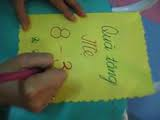 Quà tặng
Mẹ
8 - 3